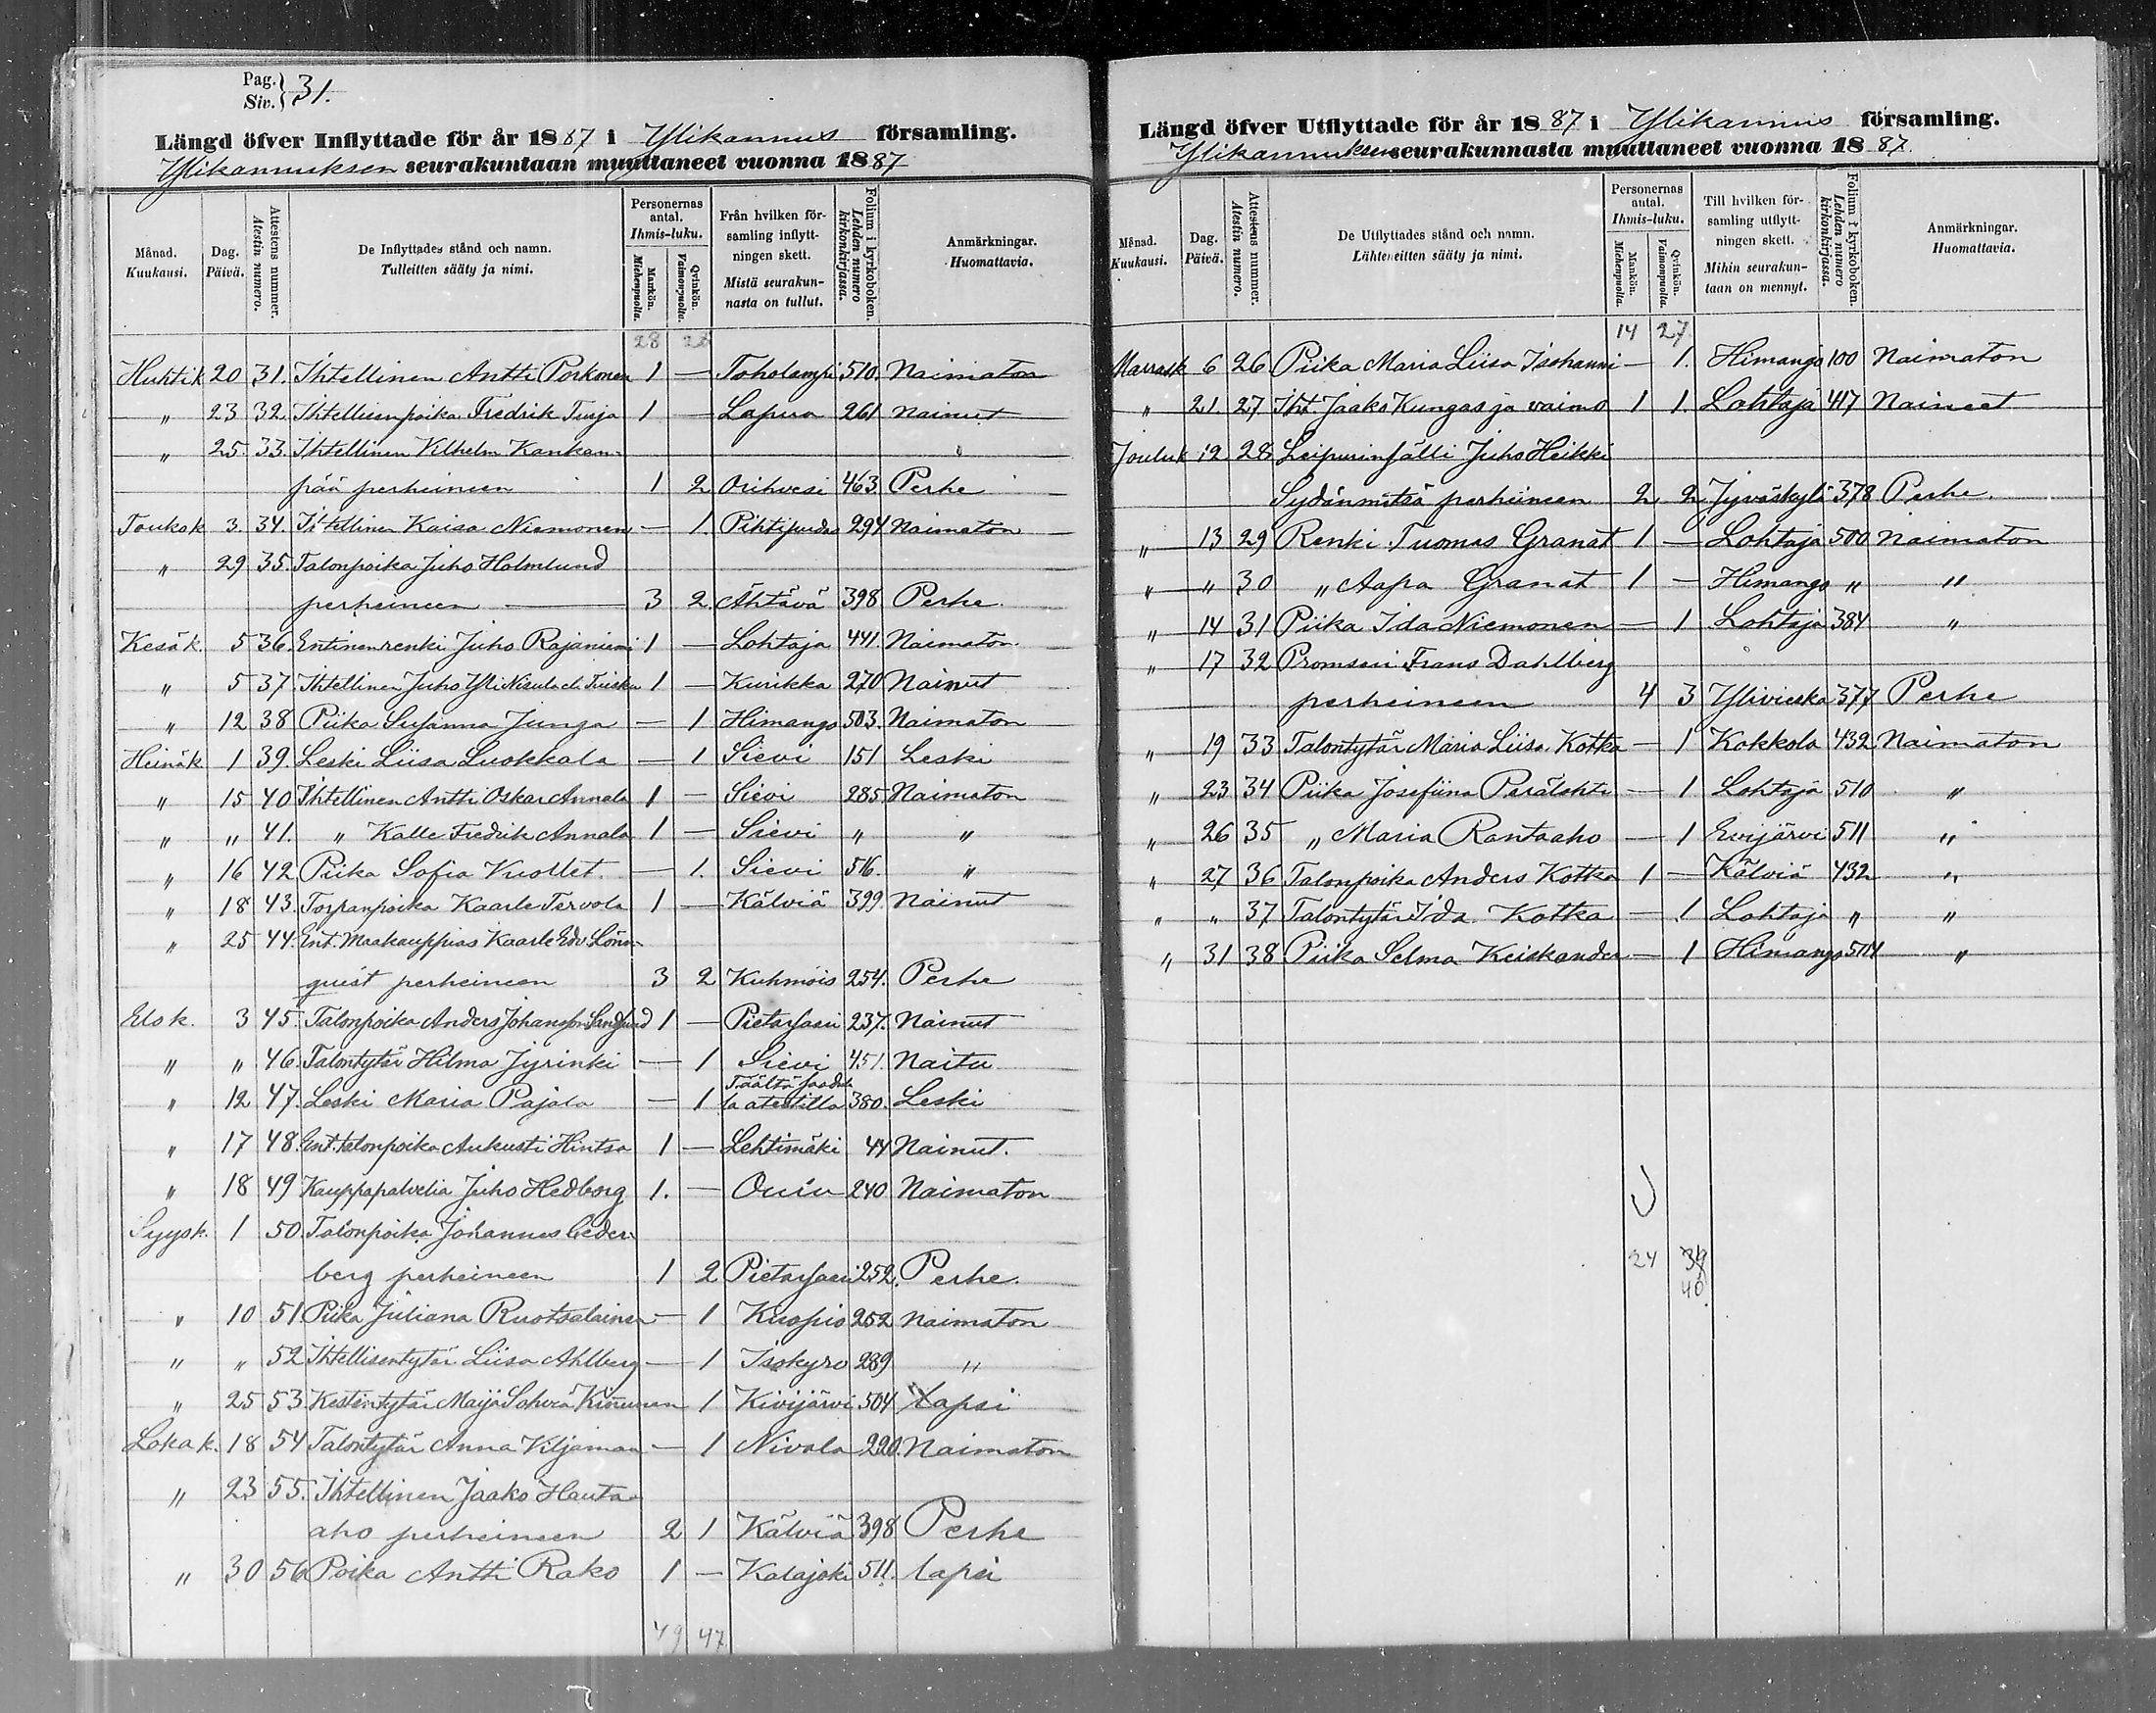 Pag. } 31.
Siv. }
Längd öfver Inflyttade för år 1887 i Ylikannus församling.
Ylikannuksen seurakuntaan muuttaneet vuonna 1887
Månad. Kuukausi. Dag. Päivä. Attestens nummer. Atestin numero. De Inflyttades stånd och namn. Tulleitten sääty ja nimi. Personernas antal. Ihmis-luku. Mankön. Miehenpuolia. Qvinkön. Vaimonpuolia. Från hvilken församling inflyttningen skett. Mistä seurakunnasta on tullut. Folium i kyrkoboken. Lehden numero kirkonkirjassa. Anmärkningar. Huomattavia.
28
Huhtik 20 31. Ihtellinen Antti Porkonen 1 — Toholampi 510. Naimaton
" 23 32. Ihtellisenpoika Fredrik Turja 1 — Lapua 261 Nainut
" 25 33. Ihtellinen Vilhelm Kankan-
pää perheineen 1 2 Orihvesi 463. Perhe
Toukok 3. 34. Ihtellinen Kaisa Niemonen — 1. Pihtipudas 294 Naimaton
" 29 35. Talonpoika Juho Holmlund
perheineen 3 2 Ähtävä 398 Perhe.
Kesäk. 5 36. Entinen renki Juho Rajaniemi 1 — Lohtaja 441. Naimaton
" 5 37 Ihtellinen Juho Yli Nisula 1 — Kurikka 270 Nainut
" 12 38 Piika Susanna Junga — 1 Himango 503. Naimaton
Heinäk 1 39. Leski Liisa Luokkala — 1 Sievi 151 Leski
" 15 40 Ihtellinen Antti Oskar Annala 1 — Sievi 285 Naimaton
" " 41. " Kalle Fredrik Annala 1 — Sievi " "
" 16 42 Piika Sofia Vuollet. — 1. Sievi 516. "
" 18 43. Torpanpoika Kaarle Tervola 1 — Kälviä 399 Nainut
" 25 44. Ent. Maakauppias Kaarle Edv. Lönn-
quist perheineen 3 2 Kuhmois 254. Perhe
Elok. 3 45. Talonpoika Anders Johansson Sandlund 1 — Pietarsaari 237. Nainut
" " 46. Talontytär Hilma Jyrinki — 1 Sievi 451. Naitu
" 12 47. Leski Maria Pajala — 1 Täältä saadulla atestilla 380. Leski
" 17 48. Ent. talonpoika Aukusti Hintsa 1 — Lehtimäki 44 Nainut.
" 18 49 Kauppapalvelia Juho Hedborg 1. — Oulu 240 Naimaton
Syysk. 1 50 Talonpoika Johannes Ceder-
berg perheineen 1 2 Pietarsaari 252. Perhe.
" 10 51 Piika Juliana Ruotsalainen — 1 Kuopio 252 Naimaton
" " 52 Ihtellisentytär Liisa Ahlberg — 1 Isokyrö 289 "
" 25 53. Kestintytär Maija Kinnunen 1 Kivijärvi 504 Lapsi
Lokak. 18 54 Talontytär Anna Viljaman — 1 Nivala 290. Naimaton
" 23 55. Ihtellinen Jaako Hauta-
aho perheineen 2 1 Kälviä 398 Perhe
" 30 56 Poika Antti Rako 1 — Kalajoki 511. Lapsi
49 47.
Längd öfver Utflyttade för år 1887 i Ylikannus församling.
Ylikannuksen seurakunnasta muuttaneet vuonna 1887.
Månad. Kuukausi. Dag. Päivä. Attestens nummer. Atestin numero. De Utflyttades stånd och namn. Lähteneitten sääty ja nimi. Personernas antal. Ihmis-luku. Mankön. Miehenpuolia. Qvinkön. Vaimonpuolia. Till hvilken församling utflyttningen skett. Mihin seurakuntaan on mennyt. Folium i kyrkoboken. Lehden numero kirkonkirjassa. Anmärkningar. Huomattavia.
14 27
Marrask 6 26. Piika Maria Liisa Isohanni — 1. Himango 100 Naimaton
" 21 27 Iht. Jaako Kungas ja vaimo 1 1. Lohtaja 417 Naineet
Jouluk 12 28 Leipurinsälli Juho Heikki
Sydänmetsä perheineen 2 2 Jyväskylä 378 Perhe.
" 13 29 Renki Tuomas Granat 1 — Lohtaja 500 Naimaton
" " 30 " Aapa Granat 1 — Himango " "
" 14 31 Piika Ida Niemonen — 1 Lohtaja 384 "
" 17 32 Frans Dahlberg
perheineen 4 3 Ylivieska 377 Perhe
" 19 33 Talontytär Maria Liisa Kotka — 1 Kokkola 432 Naimaton
" 23 34 Piika Josefiina Perälehti — 1 Lohtaja 510 "
" 26 35 " Maria Rantaaho — 1 Evijärvi 511 "
" 27 36 Talonpoika Anders Kotka 1 — Kälviä 432 "
" " 37 Talontytär Ida Kotka — 1 Lohtaja " "
" 31 38 Piika Selma Keiskander — 1 Himango 514 "
24 39
40.